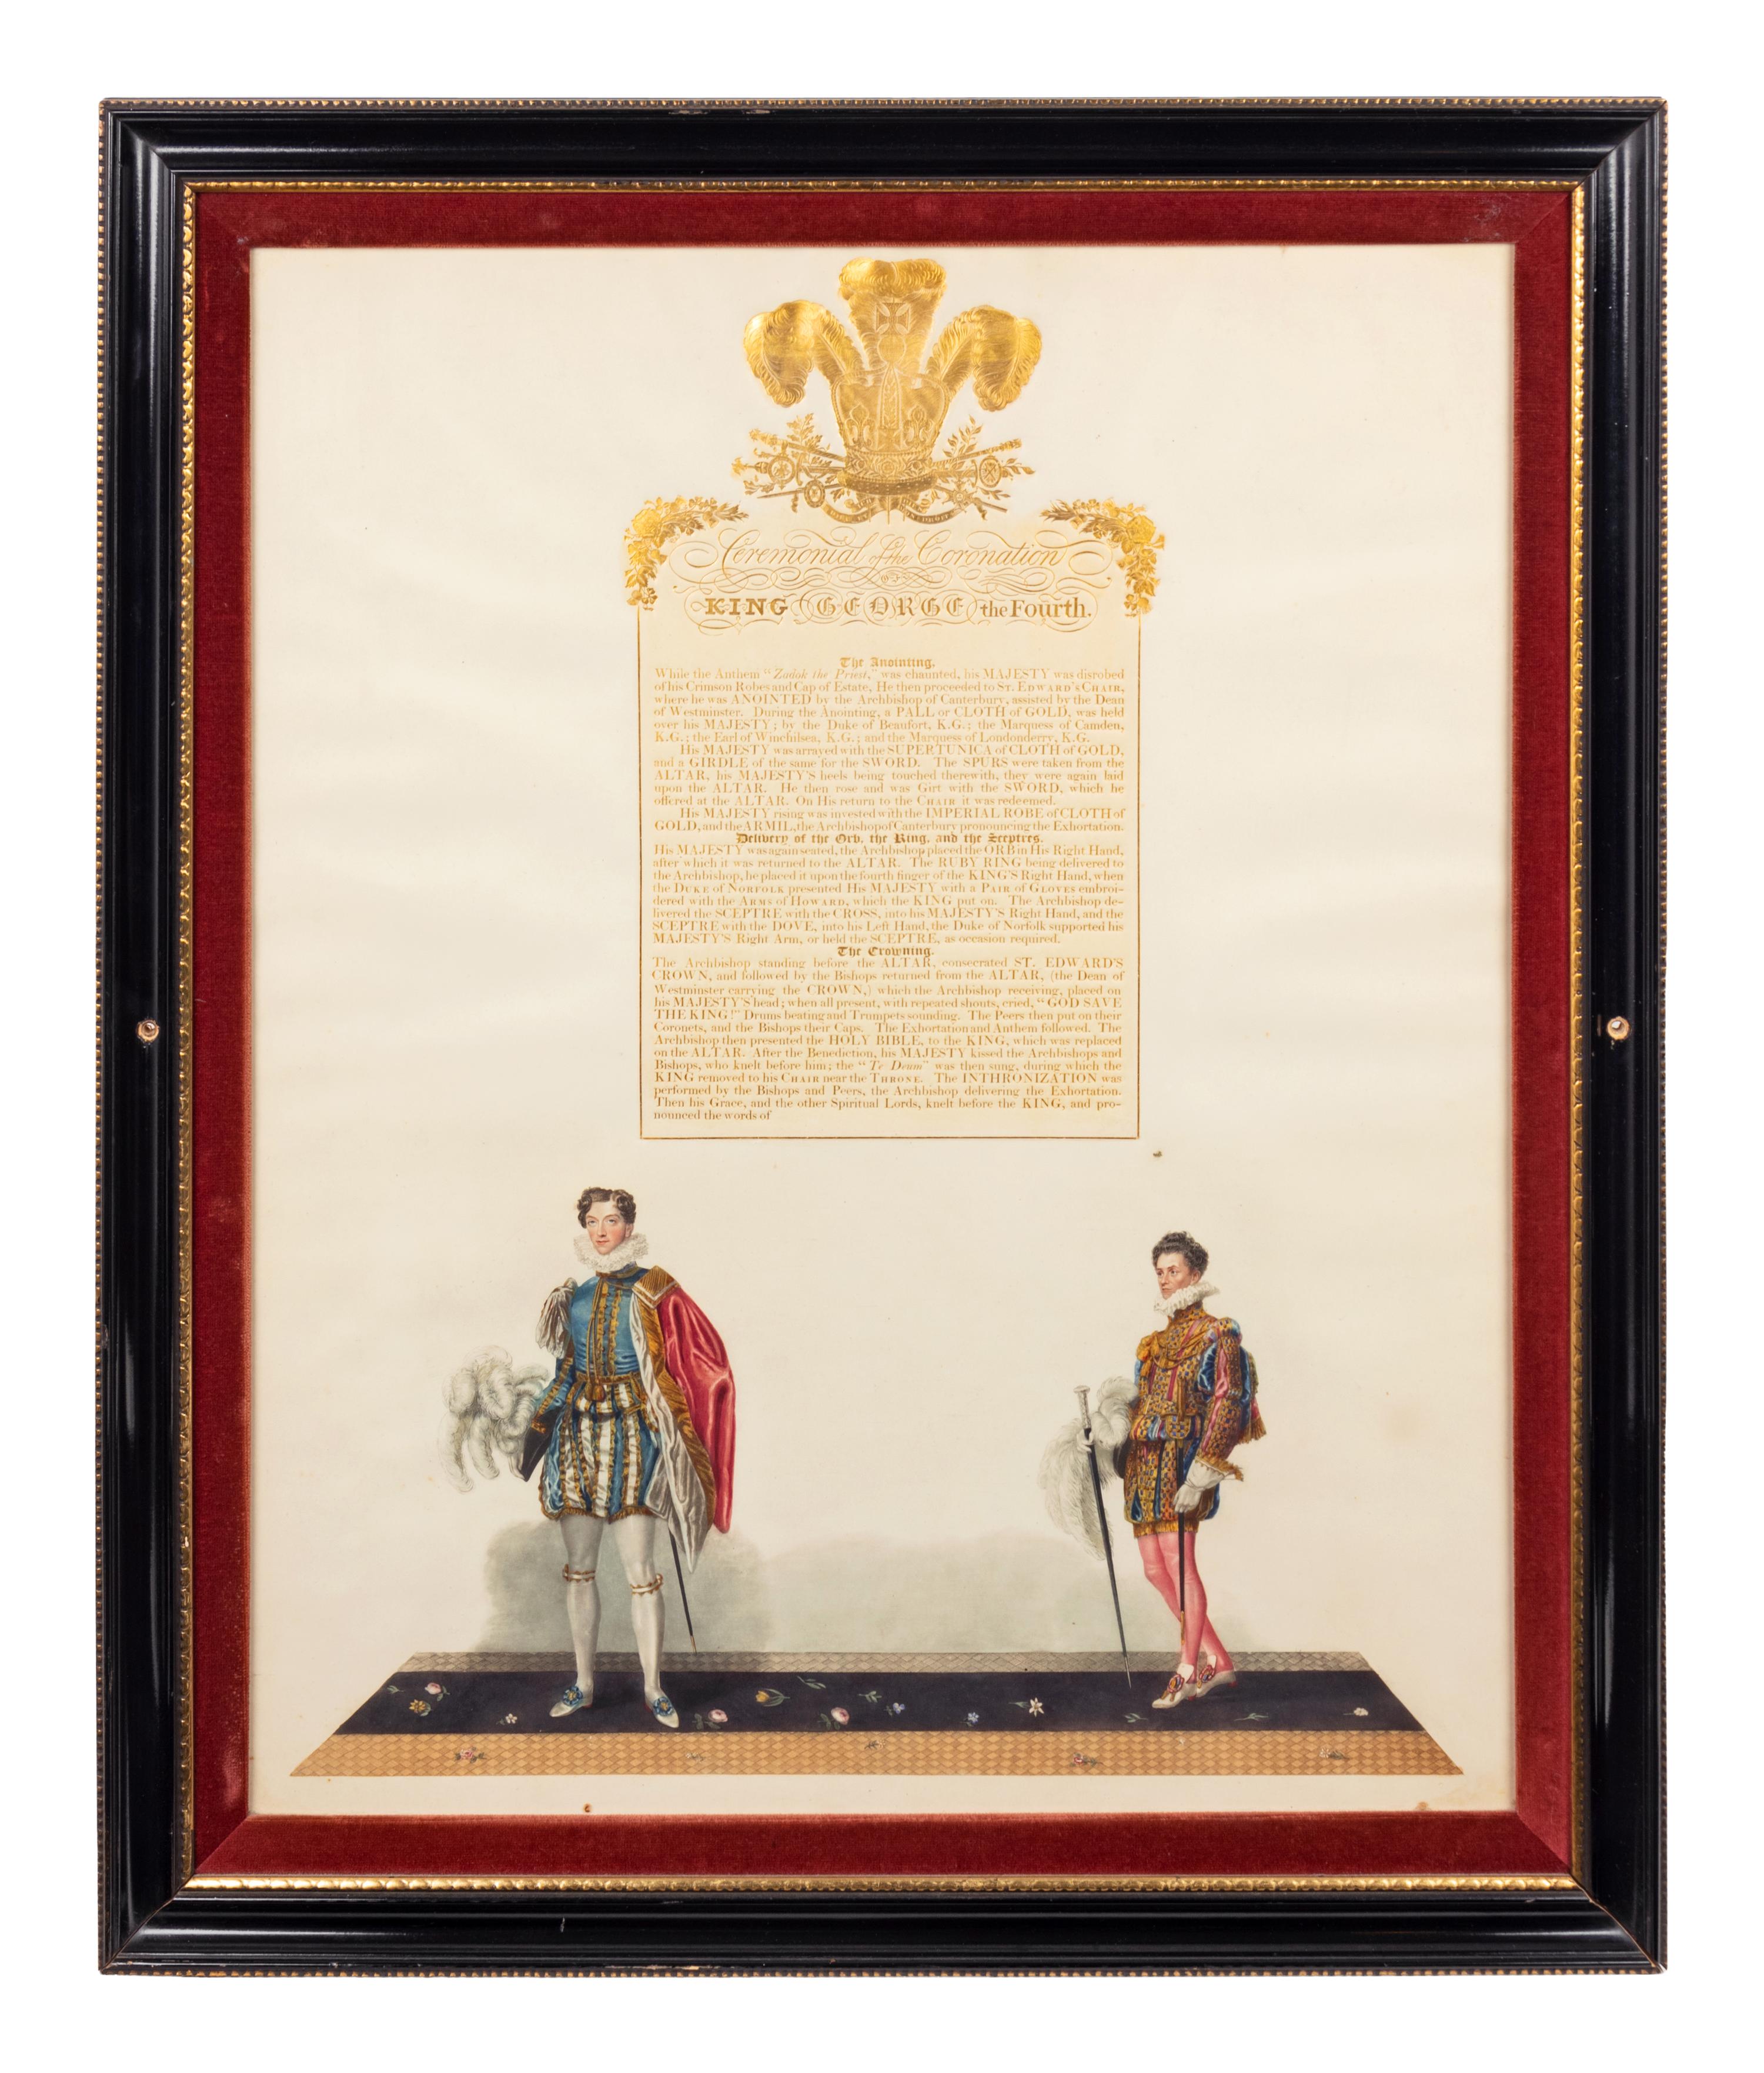 Ceremonial of the Coronation
OF
KING GEORGE the Fourth.
The Anointing.
While the Anthem "Zadok the Priest," was chaunted, his MAJESTY was disrobed
of his Crimson Robes and Cap of Estate, He then proceeded to ST. EDWARD'S CHAIR,
where he was ANOINTED by the Archbishop of Canterbury, assisted by the Dean
of Westminster. During the Anointing, a PALL or CLOTH of GOLD, was held
over his MAJESTY; by the Duke of Beaufort, K.G.; the Marquess of Camden,
K.G.; the Earl of Winchilsea, K.G.; and the Marquess of Londonderry, K.G.
His MAJESTY was arrayed with the SUPERTUNICA of CLOTH of GOLD,
and a GIRDLE of the same for the SWORD. The SPURS were taken from the
ALTAR, his MAJESTY'S heels being touched therewith, they were again laid
upon the ALTAR. He then rose and was Girt with the SWORD, which he
offered at the ALTAR. On His return to the CHAIR it was redeemed.
His MAJESTY rising was invested with the IMPERIAL ROBE of CLOTH of
GOLD, and the ARMIL, the Archbishop of Canterbury pronouncing the Exhortation.
Delivery of the Orb, the Ring, and the Sceptres.
His MAJESTY was again seated, the Archbishop placed the ORB in His Right Hand,
after which it was returned to the ALTAR. The RUBY RING being delivered to
the Archbishop, he placed it upon the fourth finger of the KING'S Right Hand, when
the DUKE of NORFOLK presented His MAJESTY with a PAIR of GLOVES embroi-
dered with the ARMS of HOWARD, which the KING put on. The Archbishop de-
livered the SCEPTRE with the CROSS, into his MAJESTY'S Right Hand, and the
SCEPTRE with the DOVE, into his Left Hand, the Duke of Norfolk supported his
MAJESTY'S Right Arm, or held the SCEPTRE, as occasion required.
The Crowning.
The Archbishop standing before the ALTAR, consecrated ST. EDWARD'S
CROWN, and followed by the Bishops returned from the ALTAR, (the Dean of
Westminster carrying the CROWN,) which the Archbishop receiving, placed on
his MAJESTY'S head; when all present, with repeated shouts, cried, "GOD SAVE
THE KING!" Drums beating and Trumpets sounding. The Peers then put on their
Coronets, and the Bishops their Caps. The Exhortation and Anthem followed. The
Archbishop then presented the HOLY BIBLE, to the KING, which was replaced
on the ALTAR. After the Benediction, his MAJESTY kissed the Archbishops and
Bishops, who knelt before him; the "Te Deum" was then sung, during which the
KING removed to his CHAIR near the THRONE. The INTHRONIZATION was
performed by the Bishops and Peers, the Archbishop delivering the Exhortation.
Then his Grace, and the other Spiritual Lords, knelt before the KING, and pro-
nounced the words of